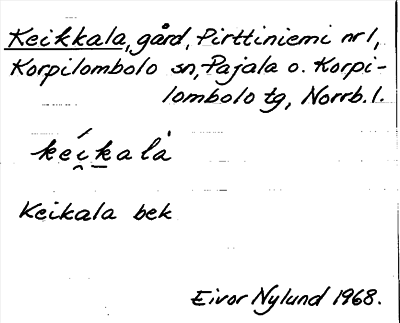 Keikkala, gård, Pirttiniemi nr 1,
Korpilombolo sn, Pajala o. Korpi-
lombolo tg, Norrb. l.
ké̯ik̲alà
Keikala bek
Eivor Nylund 1968.